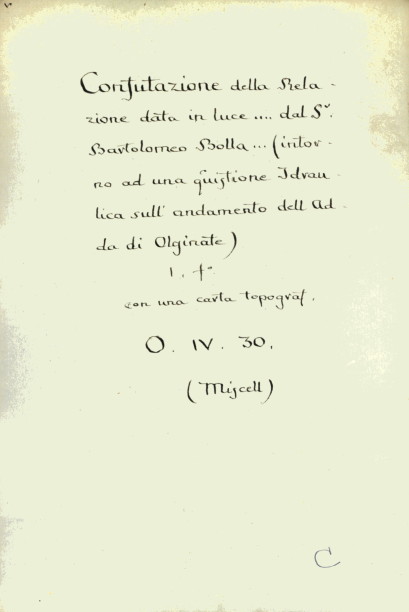 Confutazione della Rela-
zione data in luce .... dal Sr.
Bartolomeo Bolla ... (intor-
no ad una quistione Idrau-
lica sull' andamento dell Ad-
da di Olginate)
1. fo
con una carta topograf.
O. IV. 30.
(Miscell)
C